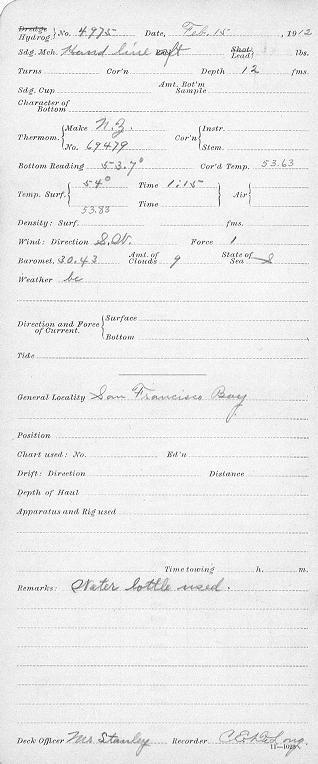 Dredge Hydrog. } No. 4975 Date, Feb. 15, 1912
Sdg. Mch. Hand line aft Shot Lead } 3 lbs.
Turns Cor'n Depth 12 fms.
Sdg. Cup Amt. Bot'm Sample
Character of Bottom
Thermom. { Make N.Z. Cor'n { Instr.
No. 69479 Stem.
Bottom Reading 53.7° Cor'd Temp. 53.63
Temp. Surf. { 54° Time 1:15 } Air {
53.83 Time
Density: Surf. fms.
Wind: Direction S.W. Force 1
Baromet. 30.43 Amt. of Clouds 9 State of Sea S
Weather bc
Direction and Force of Current. { Surface
Bottom
Tide
General Locality San Francisco Bay
Position
Chart used: No. Ed'n
Drift: Direction Distance
Depth of Haul
Apparatus and Rig used
Time towing h. m.
Remarks: Water bottle used.
11—1028
Deck Officer Mr Stanley Recorder